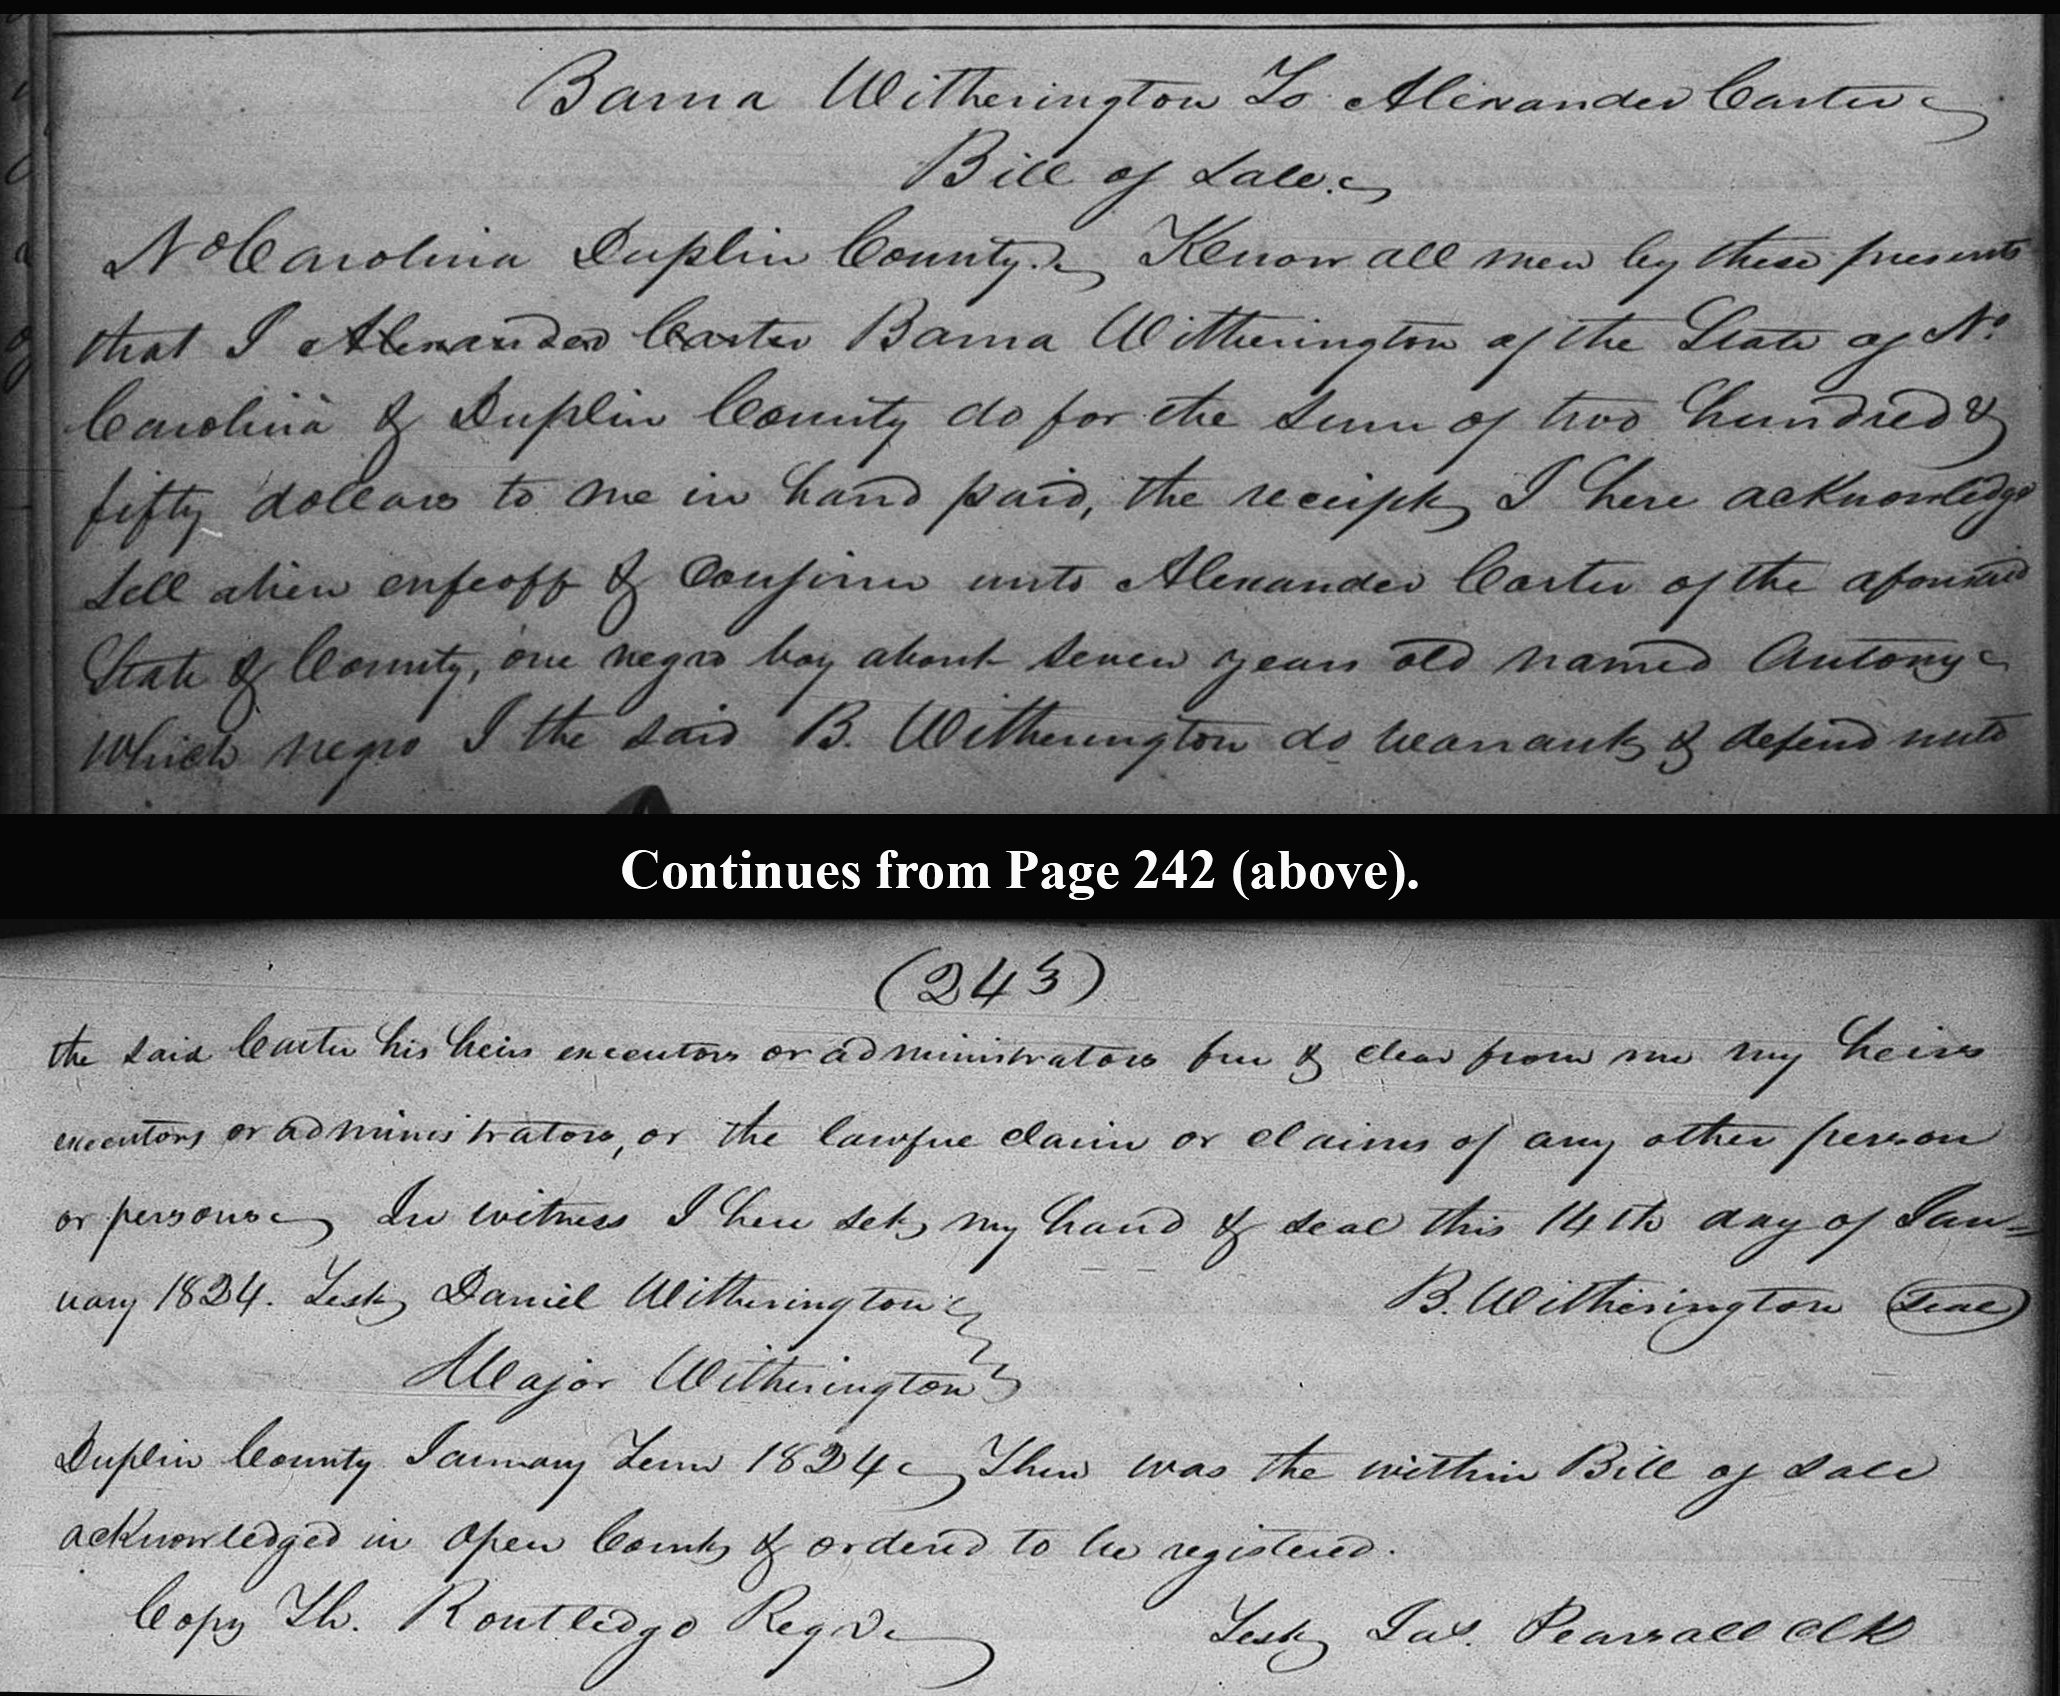 Bama Witherington To Alexander Carter
Bill of Sale.
No Carolina Duplin County. Know all men by these presents
that I Alexander Carter Bama Witherington of the State of No.
Carolina & Duplin County do for the sum of two hundred &
fifty dollars to me in hand paid, the receipt I here acknowledge
sell alien enfeoff & Confirm unto Alexander Carter of the aforesaid
State & County, one negro boy about seven years old named Antony
Which negro I the said B. Witherington do warrant & defend unto
Continues from Page 242 (above).
(243)
the said Carter his heirs executors or administrators free & clear from me my heirs
executors or administrators, or the lawful claim or claims of any other person
or persons In witness I here set my hand & seal this 14th day of Jan=
uary 1824. Test Daniel Witherington B. Witherington Seal
Major Witherington
Duplin County January Term 1824 Then was the within Bill of sale
acknowledged in Open Court & ordered to be registered.
Copy Th. Routledge Regr. Test Jas. Pearsall Clk